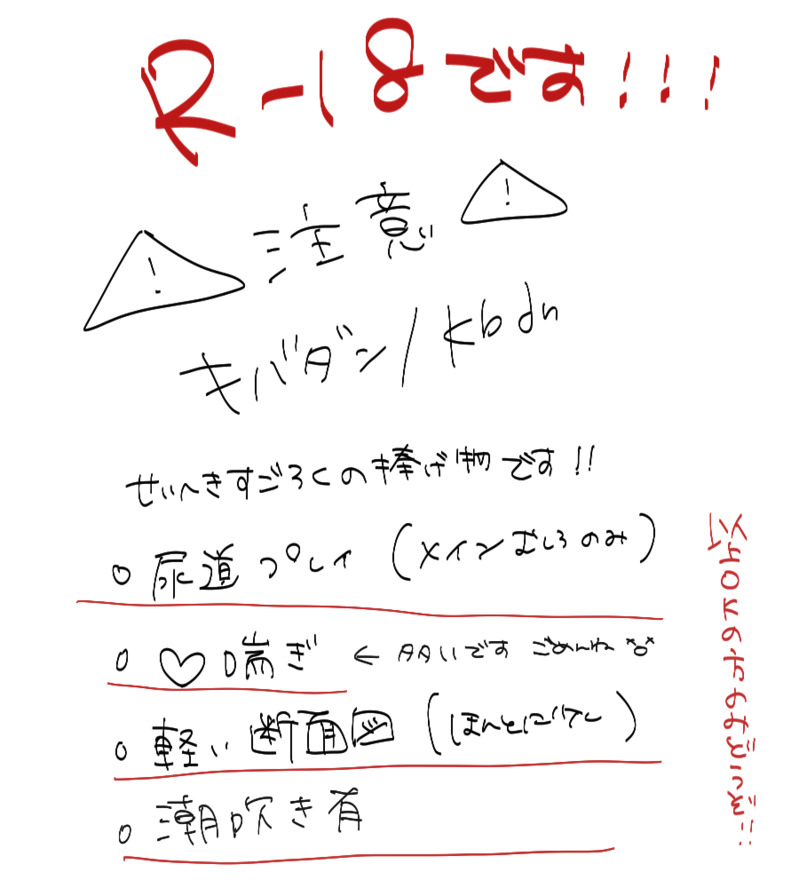 R-18です!!!
! 注意 !
キバダン/kbdn
せいへきすごろくの捧げ物です!!
○ 尿道プレイ (メインむしろのみ)
○ ♡喘ぎ ← 多いです ごめんね
○ 軽い断面図 (ほんとに軽く)
○ 潮吹き有
以上OKの方のみどうぞ!!